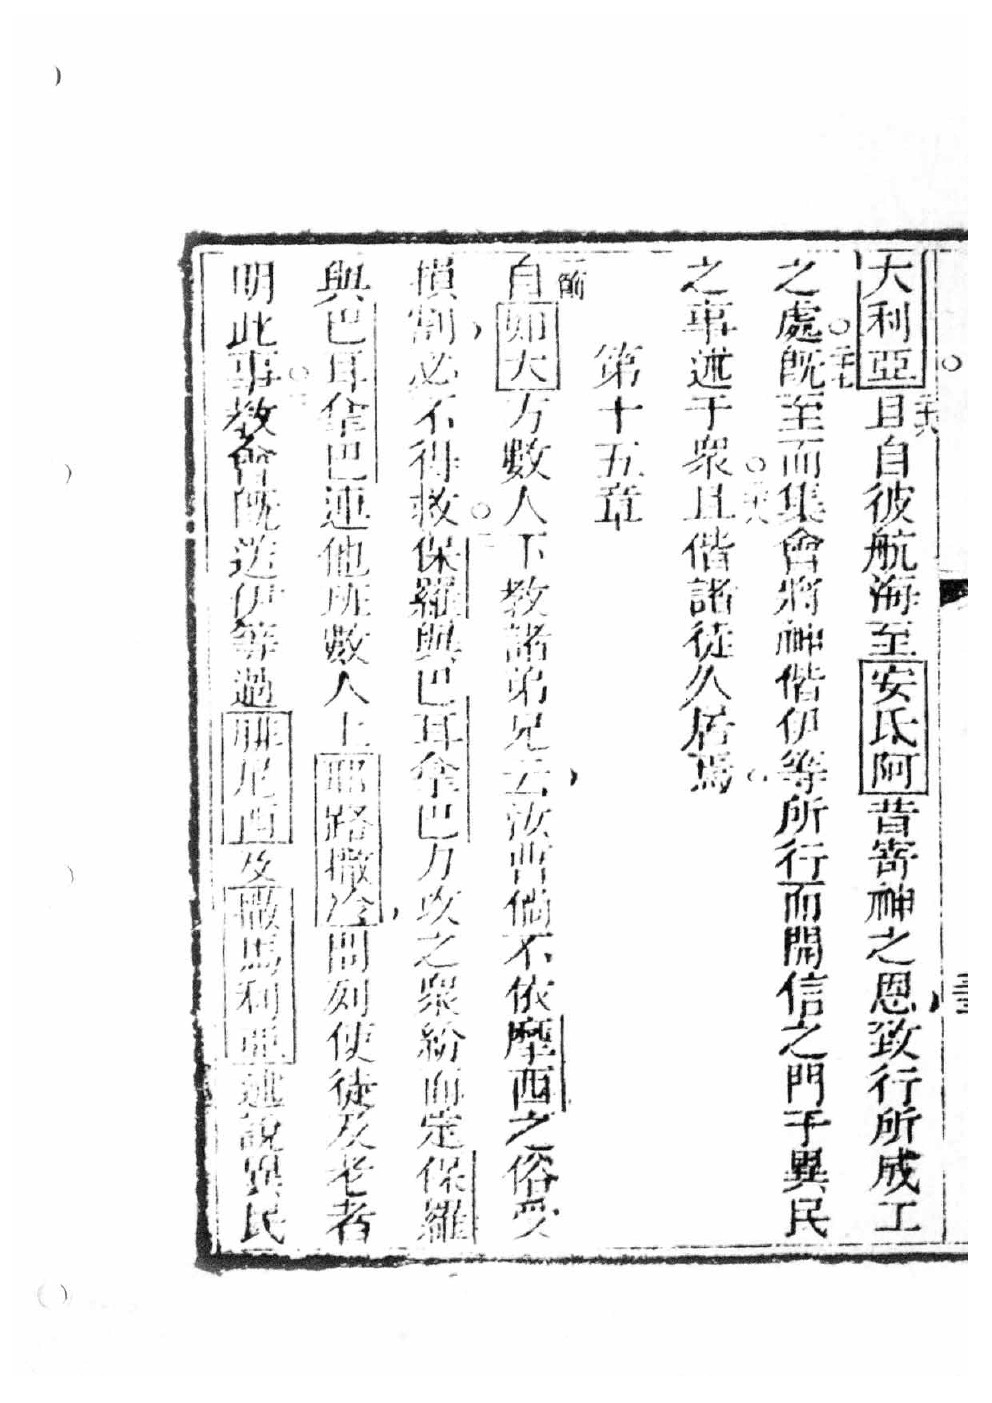 大利亞且自彼航海至安氐阿昔寄神之恩致行所成工
之處旣至而集會將神偕伊等所行而開信之門于異民
之事述于衆且偕諸徒久居焉
第十五章
自如大方數人下教諸弟兄云汝曹倘不依摩西之俗受
損割必不得救保羅與巴耳拿巴力攻之衆紛而定保羅
與巴耳拿巴連他班數人上耶路撒冷問列使徒及老者
明此事教會旣送伊等過腓尼西及撒馬利亞述說異民